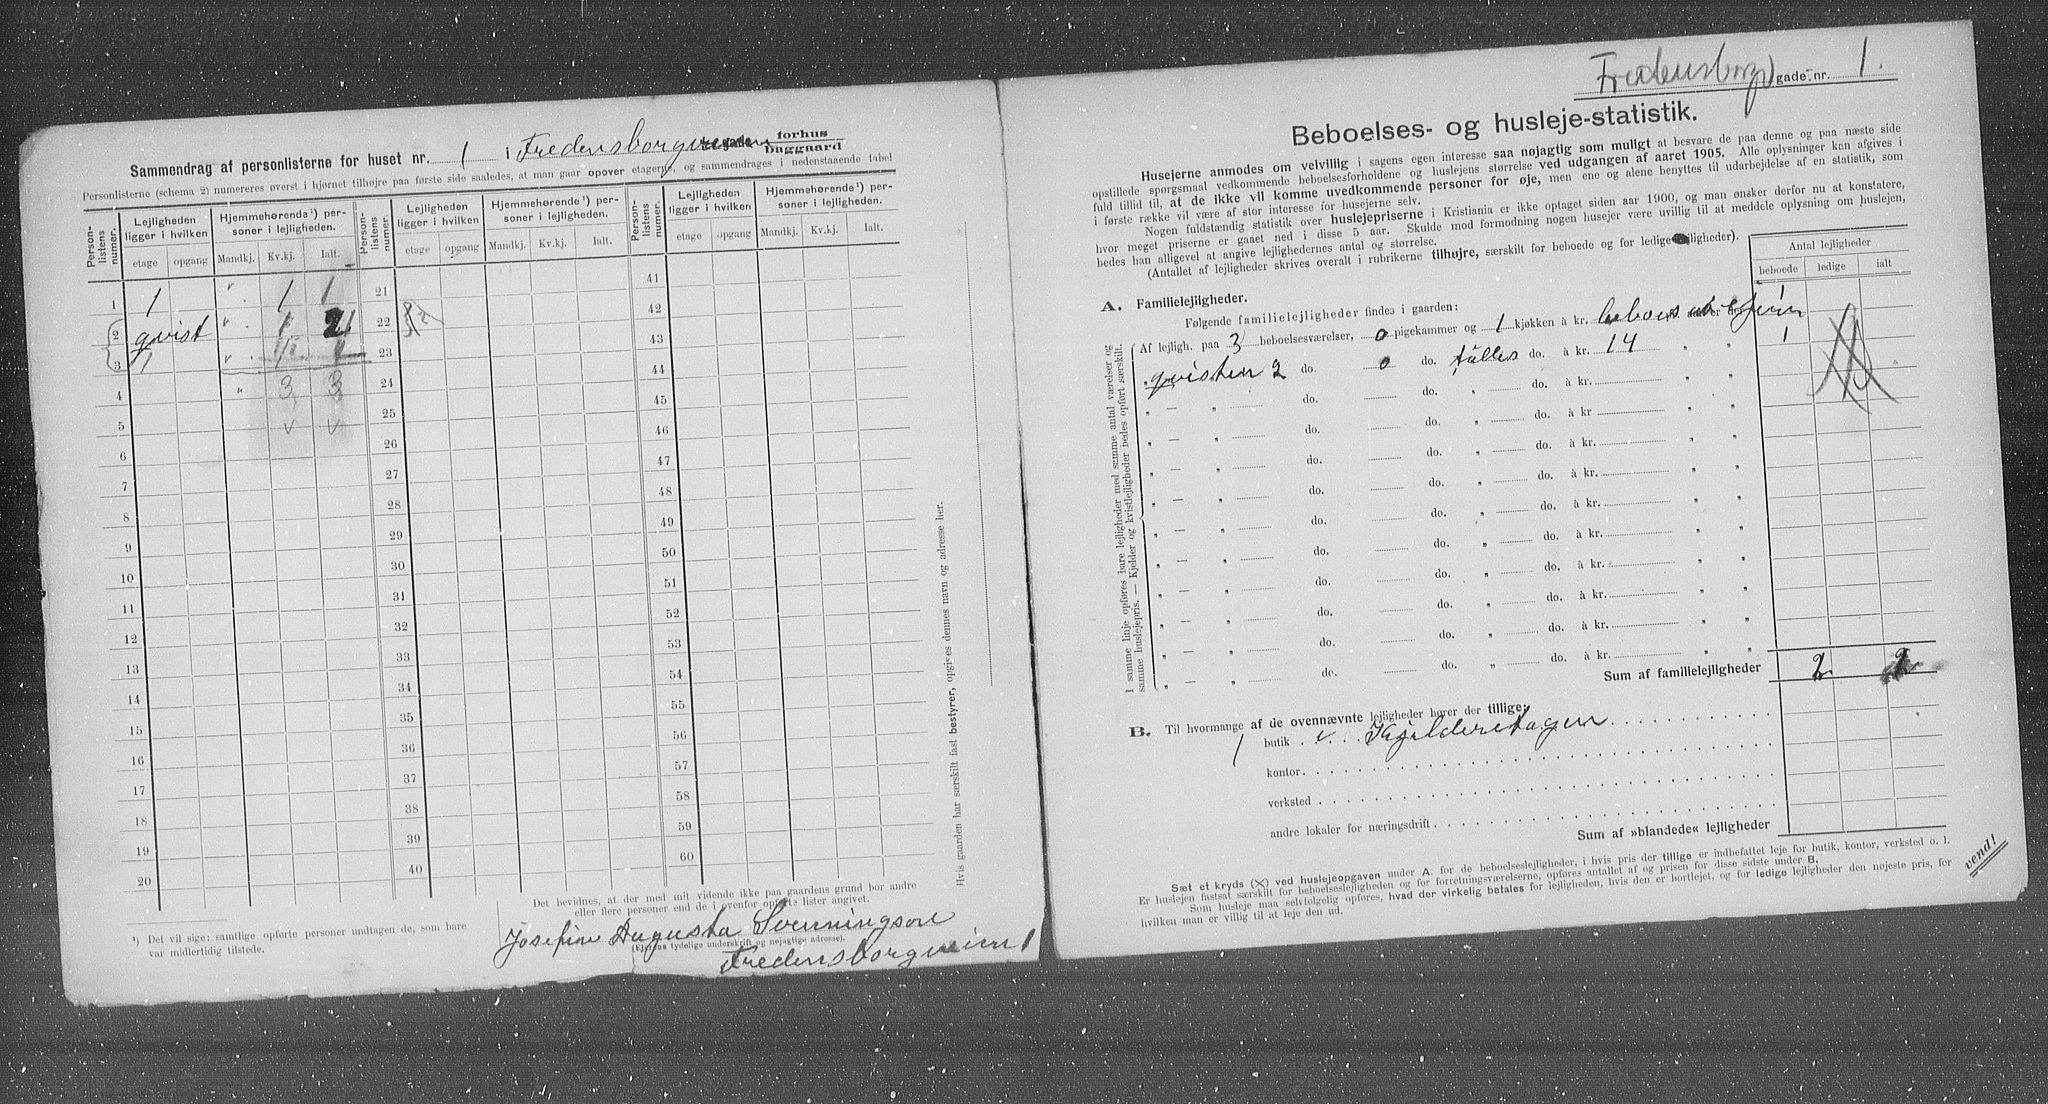 Sammendrag af personlisterne for huset nr. 1 i Fredensborgveien gaden forhus
baggaard
Personlisterne (schema 2) numereres øverst i hjørnet tilhøjre paa første side saaledes, at man gaar opover etagerne, og sammendrages i nedenstaaende tabel
Person-listens numer. Lejligheden ligger i hvilken Hjemmehørende¹) personer i lejligheden. Person-listens numer. Lejligheden ligger i hvilken Hjemmehørende¹) personer i lejligheden. Person-listens numer. Lejligheden ligger i hvilken Hjemmehørende¹) personer i lejligheden.
etage opgang Mandkj. Kv.kj. Ialt. etage opgang Mandkj. Kv.kj. Ialt. etage opgang Mandkj. Kv.kj. Ialt.
1 1 " 1 1 21 41
2 qvist " 1 22 42
3 1 " 23 43
4 " 3 3 24 44
5 v v 25 45
6 26 46
7 27 47
8 28 48
9 29 49
10 30 50
11 31 51
12 32 52
13 33 53
14 34 54
15 35 55
16 36 56
17 37 57
18 38 58
19 39 59
20 40 60
Hvis gaarden har særskilt fast bestyrer, opgives dennes navn og adresse her.
¹) Det vil sige: samtlige opførte personer undtagen de, som bare
var midlertidig tilstede.
Det bevidnes, at der med mit vidende ikke paa gaardens grund bor andre
eller flere personer end de i ovenfor opførte lister angivet.
Josefine Augusta Svenningson
(Ejerens tydelige underskrift og nøjagtige adresse).
Fredensborgveien 1
Fredensborgv gade nr. 1.
Beboelses- og husleje-statistik.
Husejerne anmodes om velvillig i sagens egen interesse saa nøjagtig som muligt at besvare de paa denne og paa næste side
opstillede spørgsmaal vedkommende beboelsesforholdene og huslejens størrelse ved udgangen af aaret 1905. Alle oplysninger kan afgives i
fuld tillid til, at de ikke vil komme uvedkommende personer for øje, men ene og alene benyttes til udarbejdelse af en statistik, som
i første række vil være af stor interesse for husejerne selv.
Nogen fuldstændig statistik over huslejepriserne i Kristiania er ikke optaget siden aar 1900, og man ønsker derfor nu at konstatere,
hvor meget priserne er gaaet ned i disse 5 aar. Skulde mod formodning nogen husejer være uvillig til at meddele oplysning om huslejen,
bedes han alligevel at angive lejlighedernes antal og størrelse.
(Antallet af lejligheder skrives overalt i rubrikerne tilhøjre, særskilt for beboede og for ledige lejligheder).
Antal lejligheder
beboede ledige ialt
A. Familielejligheder.
Følgende familielejligheder findes i gaarden:
Af lejligh. paa 3 beboelsesværelser, 0 pigekammer og 1 kjøkken à kr. beboes 1
qvisten 2 do. 0 do. fælles do. à kr. 14 " " 1
" — " do. do. " do. à kr. " "
" — " do. do. " do. à kr " "
" — " do. do. " do. à kr. " "
" — " do. do. " do. à kr. " "
" — " do. do. " do. à kr. " "
" — " do. do. " do. à kr. " "
" — " do. do. " do. à kr. " "
" — " do. do. " do. à kr. " "
" — " do. do. " do. à kr. " "
" — " do. do. " do. à kr. " "
I samme linje opføres bare lejligheder med samme antal værelser og
samme huslejepris. — Kjelder og kvistlejligheder bedes opført særskilt.
Sum af familielejligheder 2 2
B. Til hvormange af de ovennævnte lejligheder hører der tillige:
1 butik i Kjelderetagen
kontor
verksted
andre lokaler for næringsdrift
Sum af »blandede« lejligheder
Sæt et kryds (×) ved huslejeopgaven under A. for de beboelseslejligheder, i hvis pris der tillige er indbefattet leje for butik, kontor, verksted o. l.
Er huslejen fastsat særskilt for beboelseslejligheden og for forretningsværelserne, opføres antallet af og prisen for disse sidste under B.
Som husleje maa selvfølgelig opføres, hvad der virkelig betales for lejligheden, hvis den er bortlejet, og for ledige lejligheder den nøjeste pris, for
hvilken man er villig til at leje den ud.
vend!